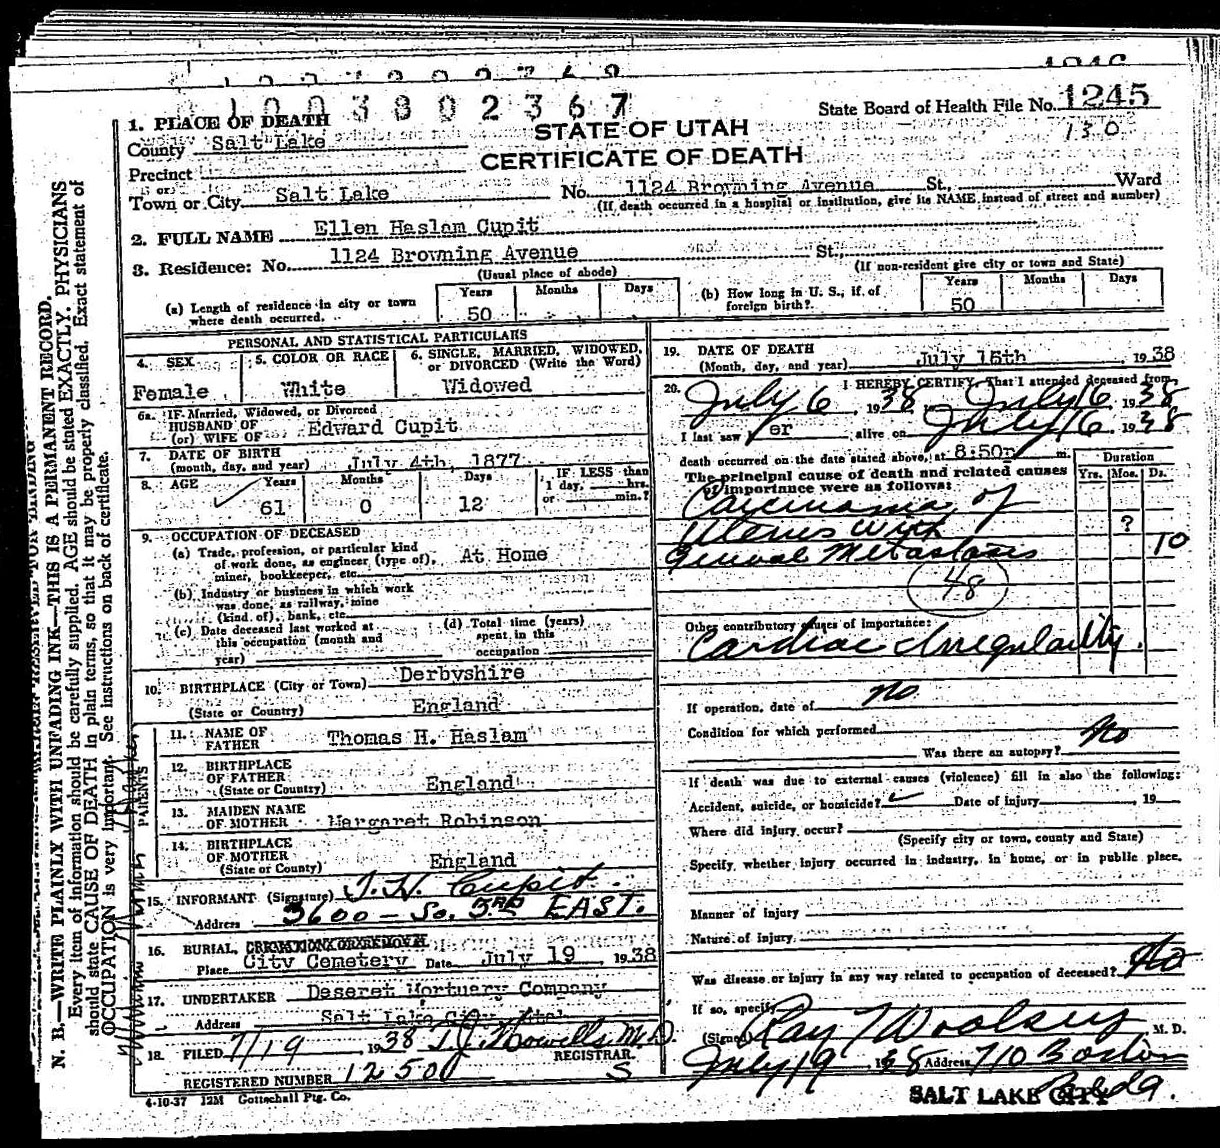 1245
1003802367
State Board of Health File No. 1245
130
STATE OF UTAH
CERTIFICATE OF DEATH
1. PLACE OF DEATH
County Salt Lake
Precinct
or
Town or City Salt Lake No. 1124 Browning Avenue St., Ward
(If death occurred in a hospital or institution, give its NAME instead of street and number)
2. FULL NAME Ellen Haslam Cupit
3. Residence: No. 1124 Browning Avenue St.,
(Usual place of abode) (If non-resident give city or town and State)
(a) Length of residence in city or town where death occurred. Years 50 Months Days
(b) How long in U. S., if of foreign birth? Years 50 Months Days
PERSONAL AND STATISTICAL PARTICULARS
4. SEX Female
5. COLOR OR RACE White
6. SINGLE, MARRIED, WIDOWED, or DIVORCED (Write the Word) Widowed
6a. IF Married, Widowed, or Divorced
HUSBAND OF
(or) WIFE OF Edward Cupit
7. DATE OF BIRTH
(month, day, and year) July 4th, 1877
8. AGE Years 61 Months 0 Days 12 IF LESS than 1 day, hrs. or min.?
9. OCCUPATION OF DECEASED
(a) Trade, profession, or particular kind
of work done, as engineer (type of), At Home
miner, bookkeeper, etc.
(b) Industry or business in which work
was done, as railway, mine
(kind of), bank, etc.
(c) Date deceased last worked at
this occupation (month and
year)
(d) Total time (years)
spent in this
occupation
10. BIRTHPLACE (City or Town) Derbyshire
(State or Country) England
PARENTS
11. NAME OF FATHER Thomas H. Haslam
12. BIRTHPLACE OF FATHER
(State or County) England
13. MAIDEN NAME OF MOTHER Margaret Robinson
14. BIRTHPLACE OF MOTHER
(State or County) England
15. INFORMANT (Signature) T. H. Cupit
Address 3600 - So. 3RD EAST.
16. BURIAL, CREMATION OR REMOVAL
Place City Cemetery Date July 19, 1938
17. UNDERTAKER Deseret Mortuary Company
Address Salt Lake City, Utah
18. FILED 7/19 1938 T. J. Howells, M.D.
REGISTRAR.
REGISTERED NUMBER 1250 S
4-10-37 12M Gottschall Ptg. Co.
19. DATE OF DEATH
(Month, day, and year) July 16th, 1938
20. I HEREBY CERTIFY, That I attended deceased from
July 6 1938, July 16 1938
I last saw her alive on July 16 1938
death occurred on the date stated above, at 8:50p m.
The principal cause of death and related causes
of importance were as follows:
Duration
Yrs. Mos. Ds.
Carcinoma of
Uterus with ?
General Metastasis 10
48
Other contributory causes of importance:
Cardiac Irregularity.
If operation, date of no
Condition for which performed
Was there an autopsy? No
If death was due to external causes (violence) fill in also the following:
Accident, suicide, or homicide? Date of injury , 19
Where did injury occur?
(Specify city or town, county and State)
Specify whether injury occurred in industry, in home, or in public place.
Manner of injury
Nature of injury
Was disease or injury in any way related to occupation of deceased? No
If so, specify
(Signed) Ray T Woolsey M. D.
July 19 1938 Address 710 Boston
Bldg.
SALT LAKE CITY
N. B.—WRITE PLAINLY WITH UNFADING INK—THIS IS A PERMANENT RECORD.
Every item of information should be carefully supplied. AGE should be stated EXACTLY. PHYSICIANS
should state CAUSE OF DEATH in plain terms, so that it may be properly classified. Exact statement of
OCCUPATION is very important. See instructions on back of certificate.